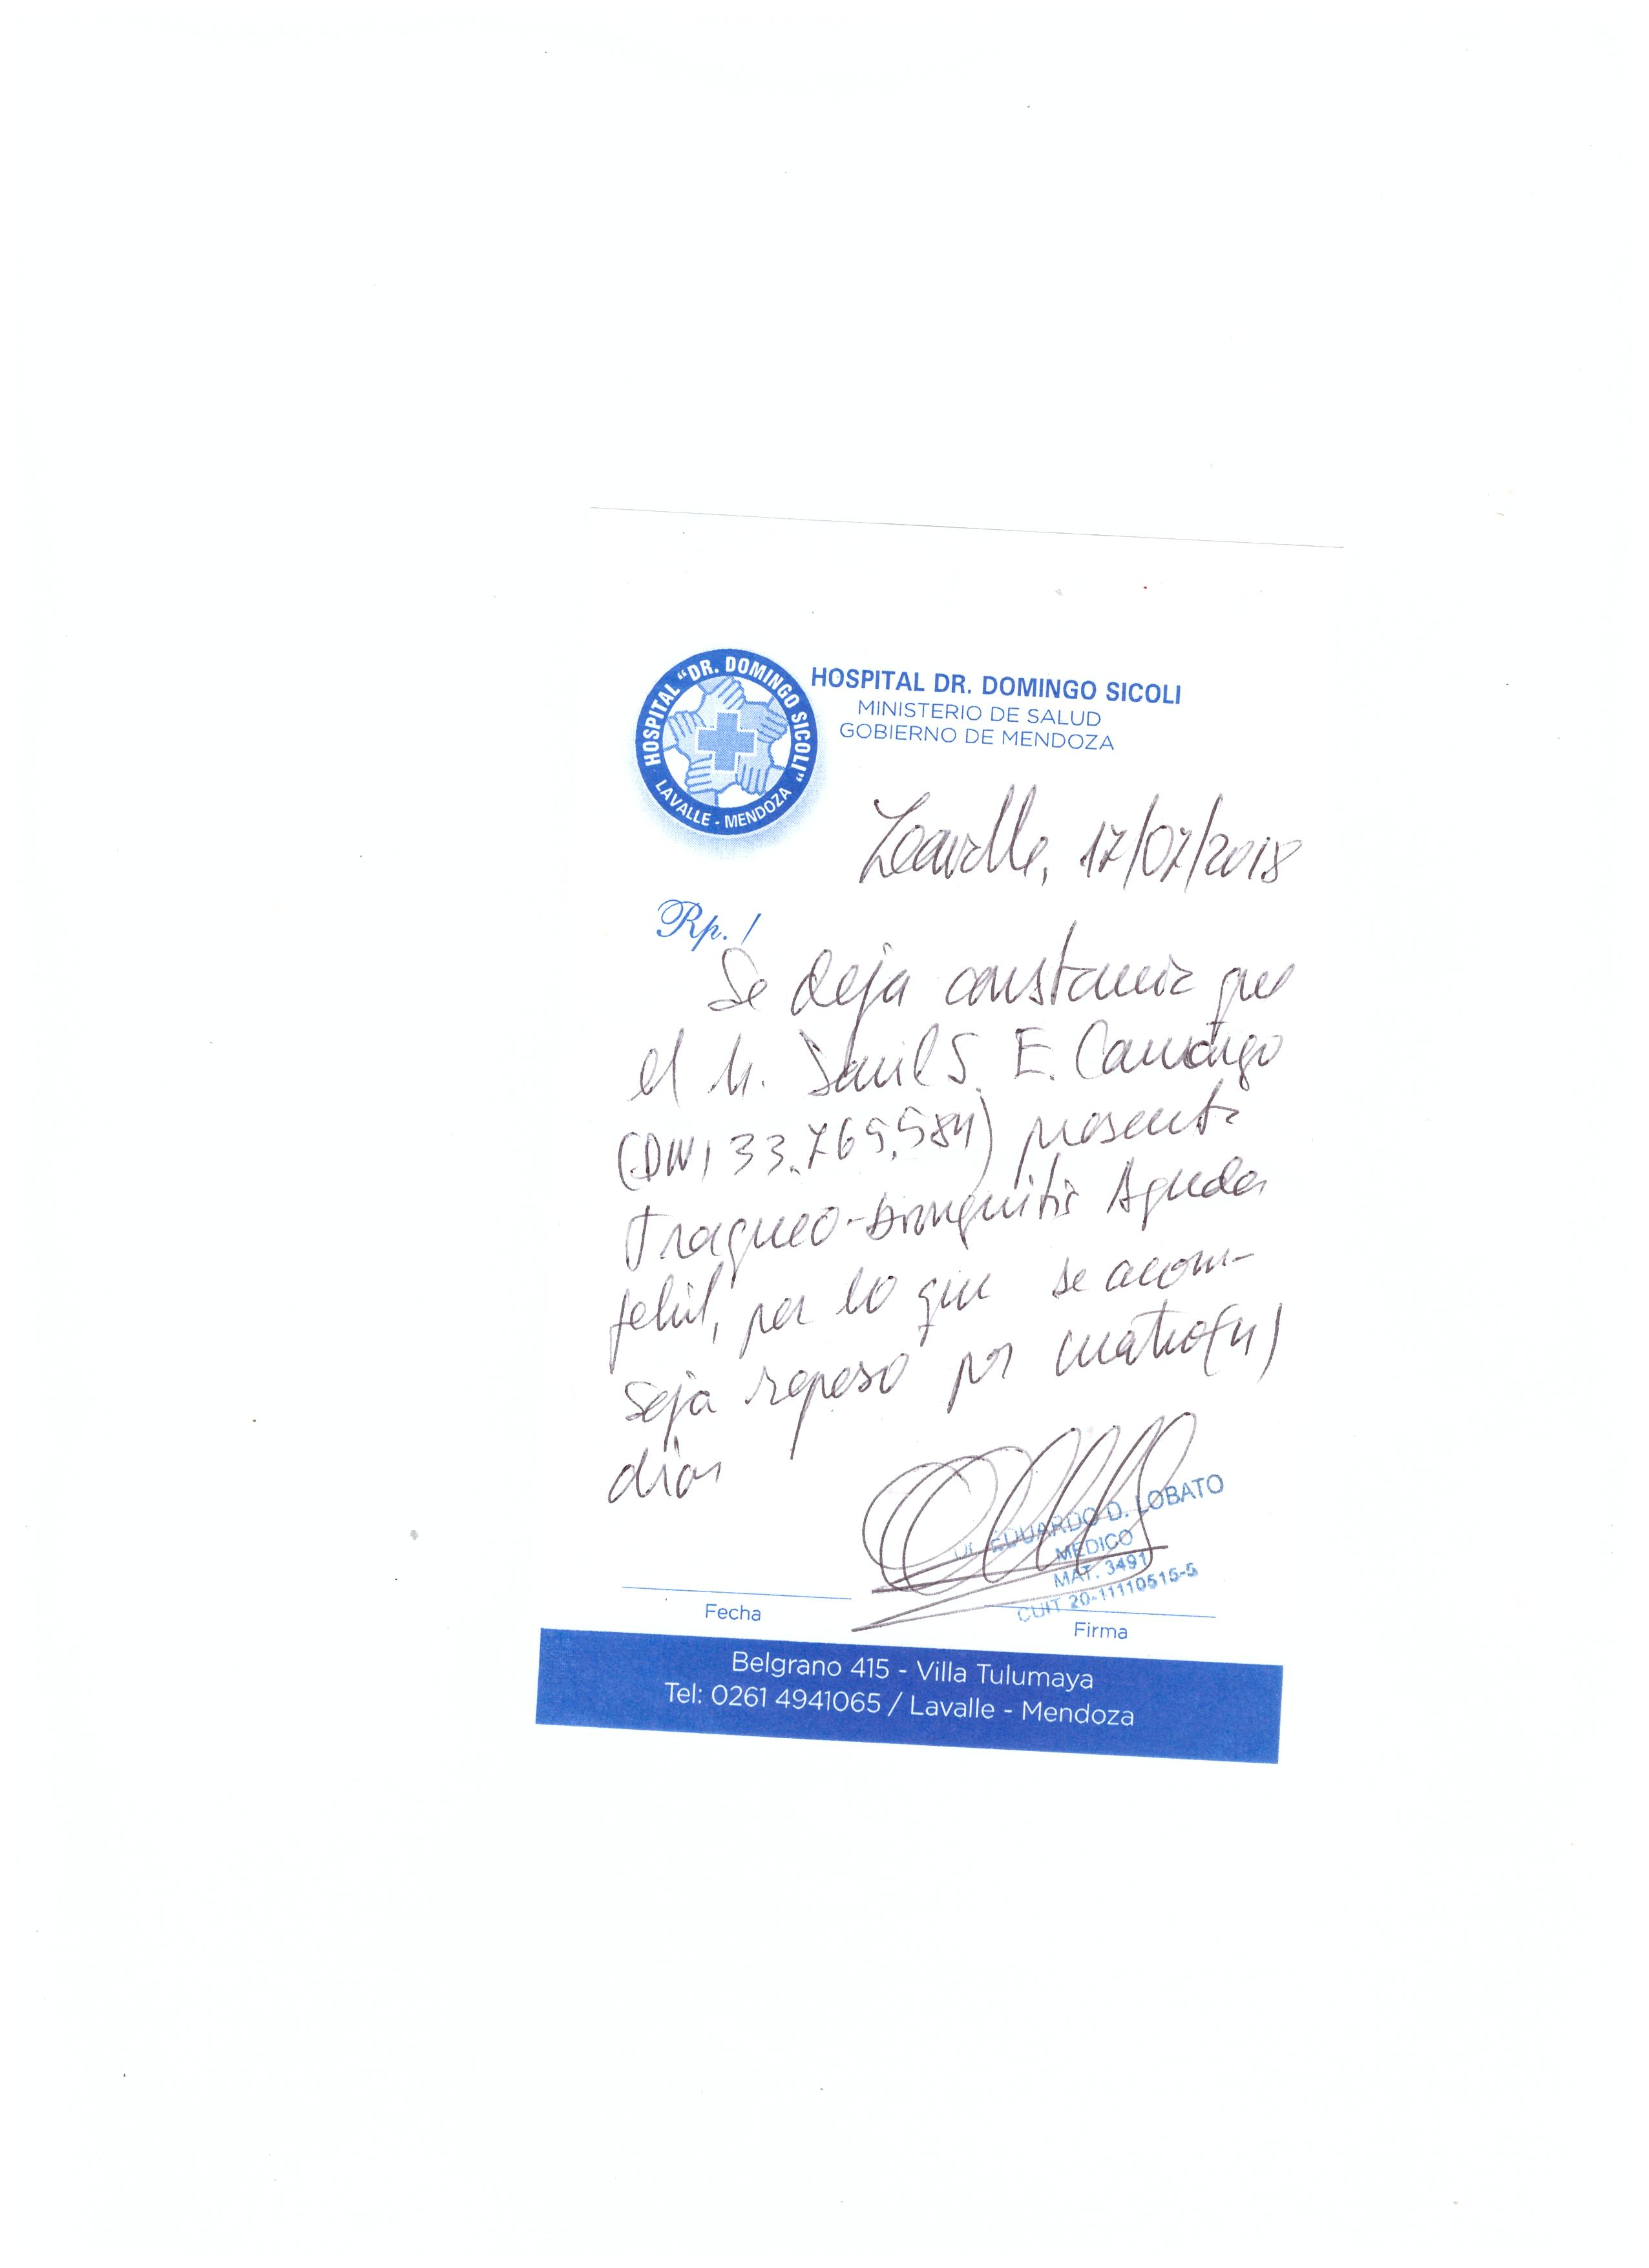 HOSPITAL "DR. DOMINGO SICOLI"
LAVALLE - MENDOZA
HOSPITAL DR. DOMINGO SICOLI
MINISTERIO DE SALUD
GOBIERNO DE MENDOZA
Lavalle, 17/07/2018
Rp. /
Se deja constancia que
el Sr. S. E. Camargo
(DNI 33.769.584) presenta
Traqueo-bronquitis Aguda
febril, por lo que se acon-
seja reposo por cuatro (4)
días
Dr. EDUARDO D. LOBATO
MEDICO
MAT. 3491
CUIT 20-11110515-5
Fecha
Firma
Belgrano 415 - Villa Tulumaya
Tel: 0261 4941065 / Lavalle - Mendoza